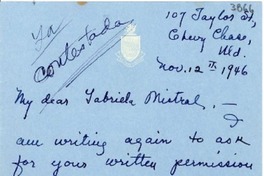 3864
Ya
contestada
107 Taylor St.,
Chevy Chase,
Md.
Nov. 12th, 1946
My dear Gabriela Mistral, — I
am writing again to ask
for your written permission